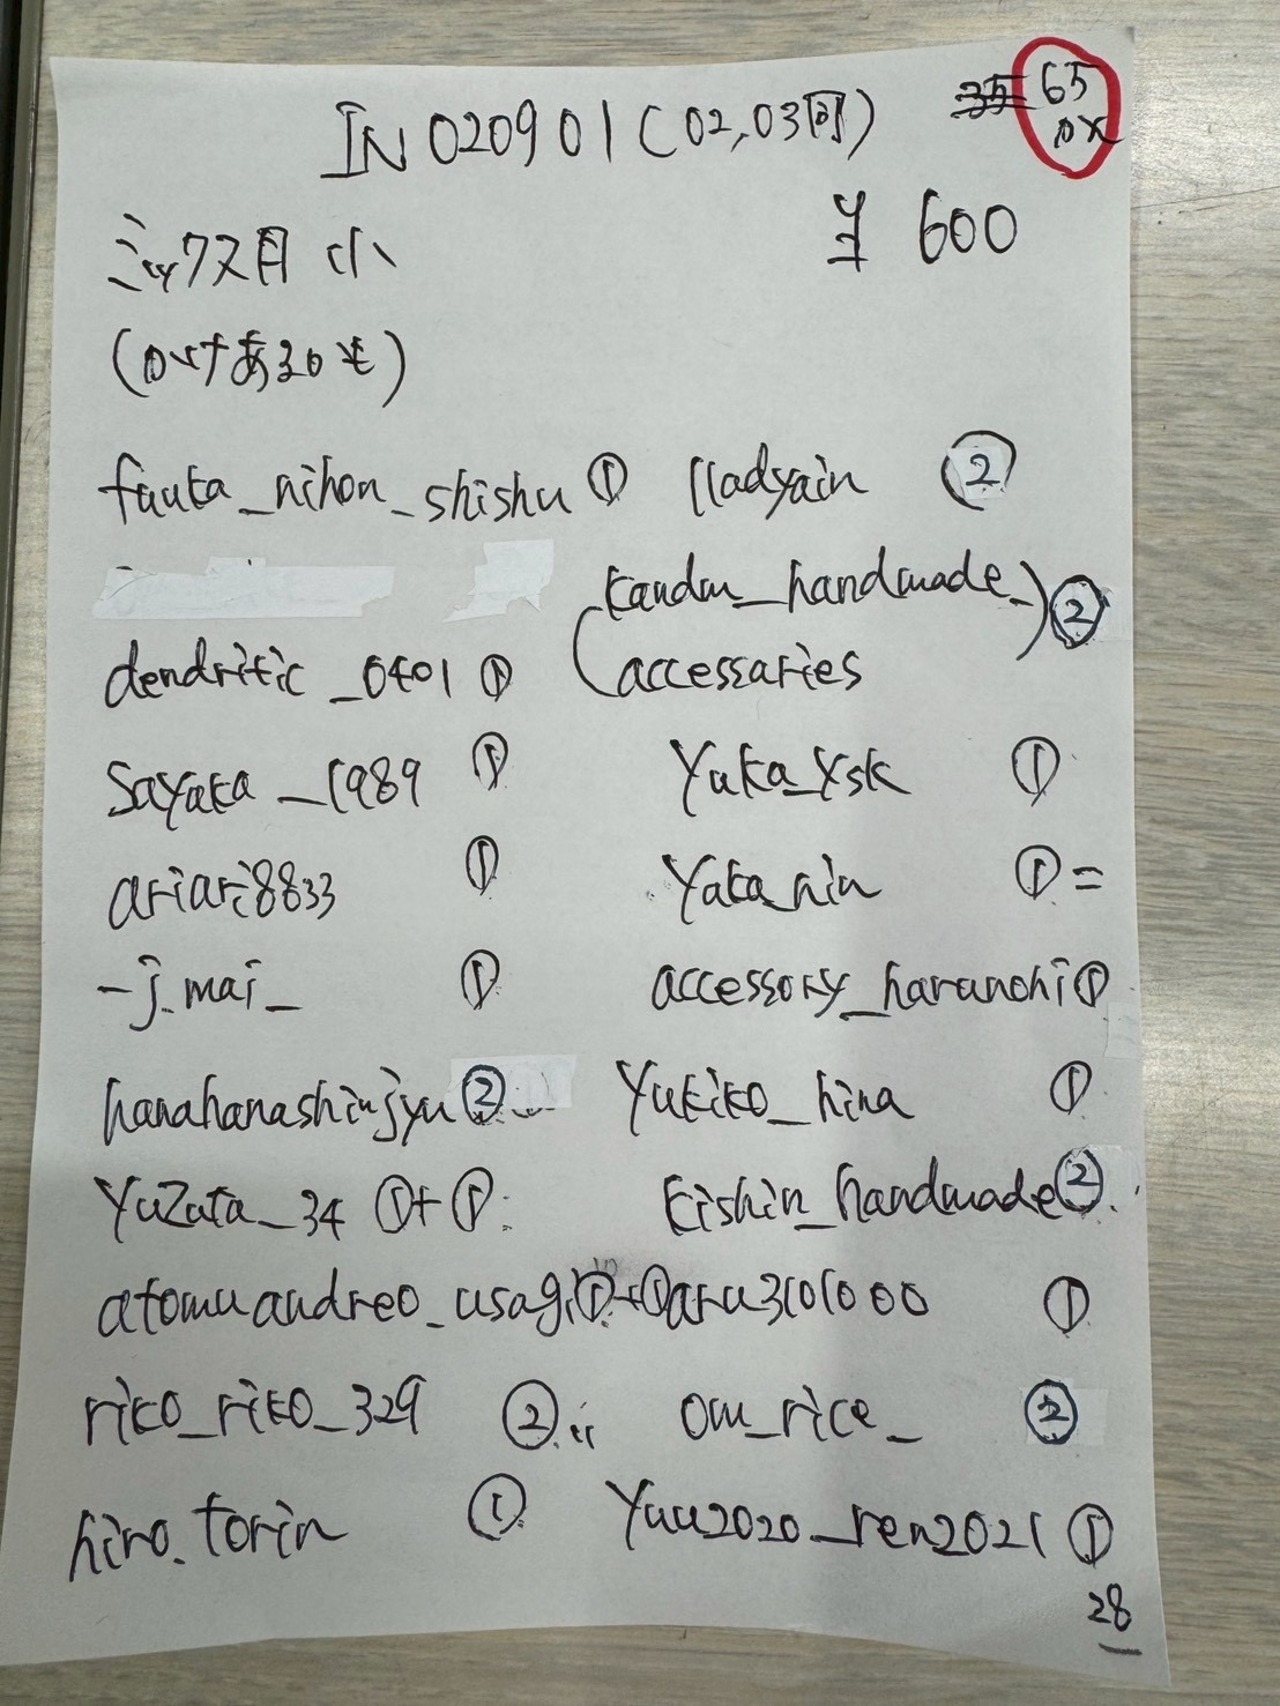 IN 020901 (02,03同)
35 65
¥ 600
ミックス月 小
(かけあるかも)
fuuka_nihon_shishu ① lladyain ②
kandm_handmade_ ②
dendritic_0401 ① accessaries
Sayaka_1989 ① Yuka_ysk ①
ariari8833 ① Yuka_nin ① =
_j.mai_ ① accessory_haranohi ①
hanahanashinjyu ② Yukiko_hina ①
Yuzuta_34 ①+① Kishin_handmade ②
atomuandreo_usagi ①+① aru3101000 ①
riko_riko_329 ② om_rice_ ②
hiro.torin ① Yuu2020_ren2021 ①
28